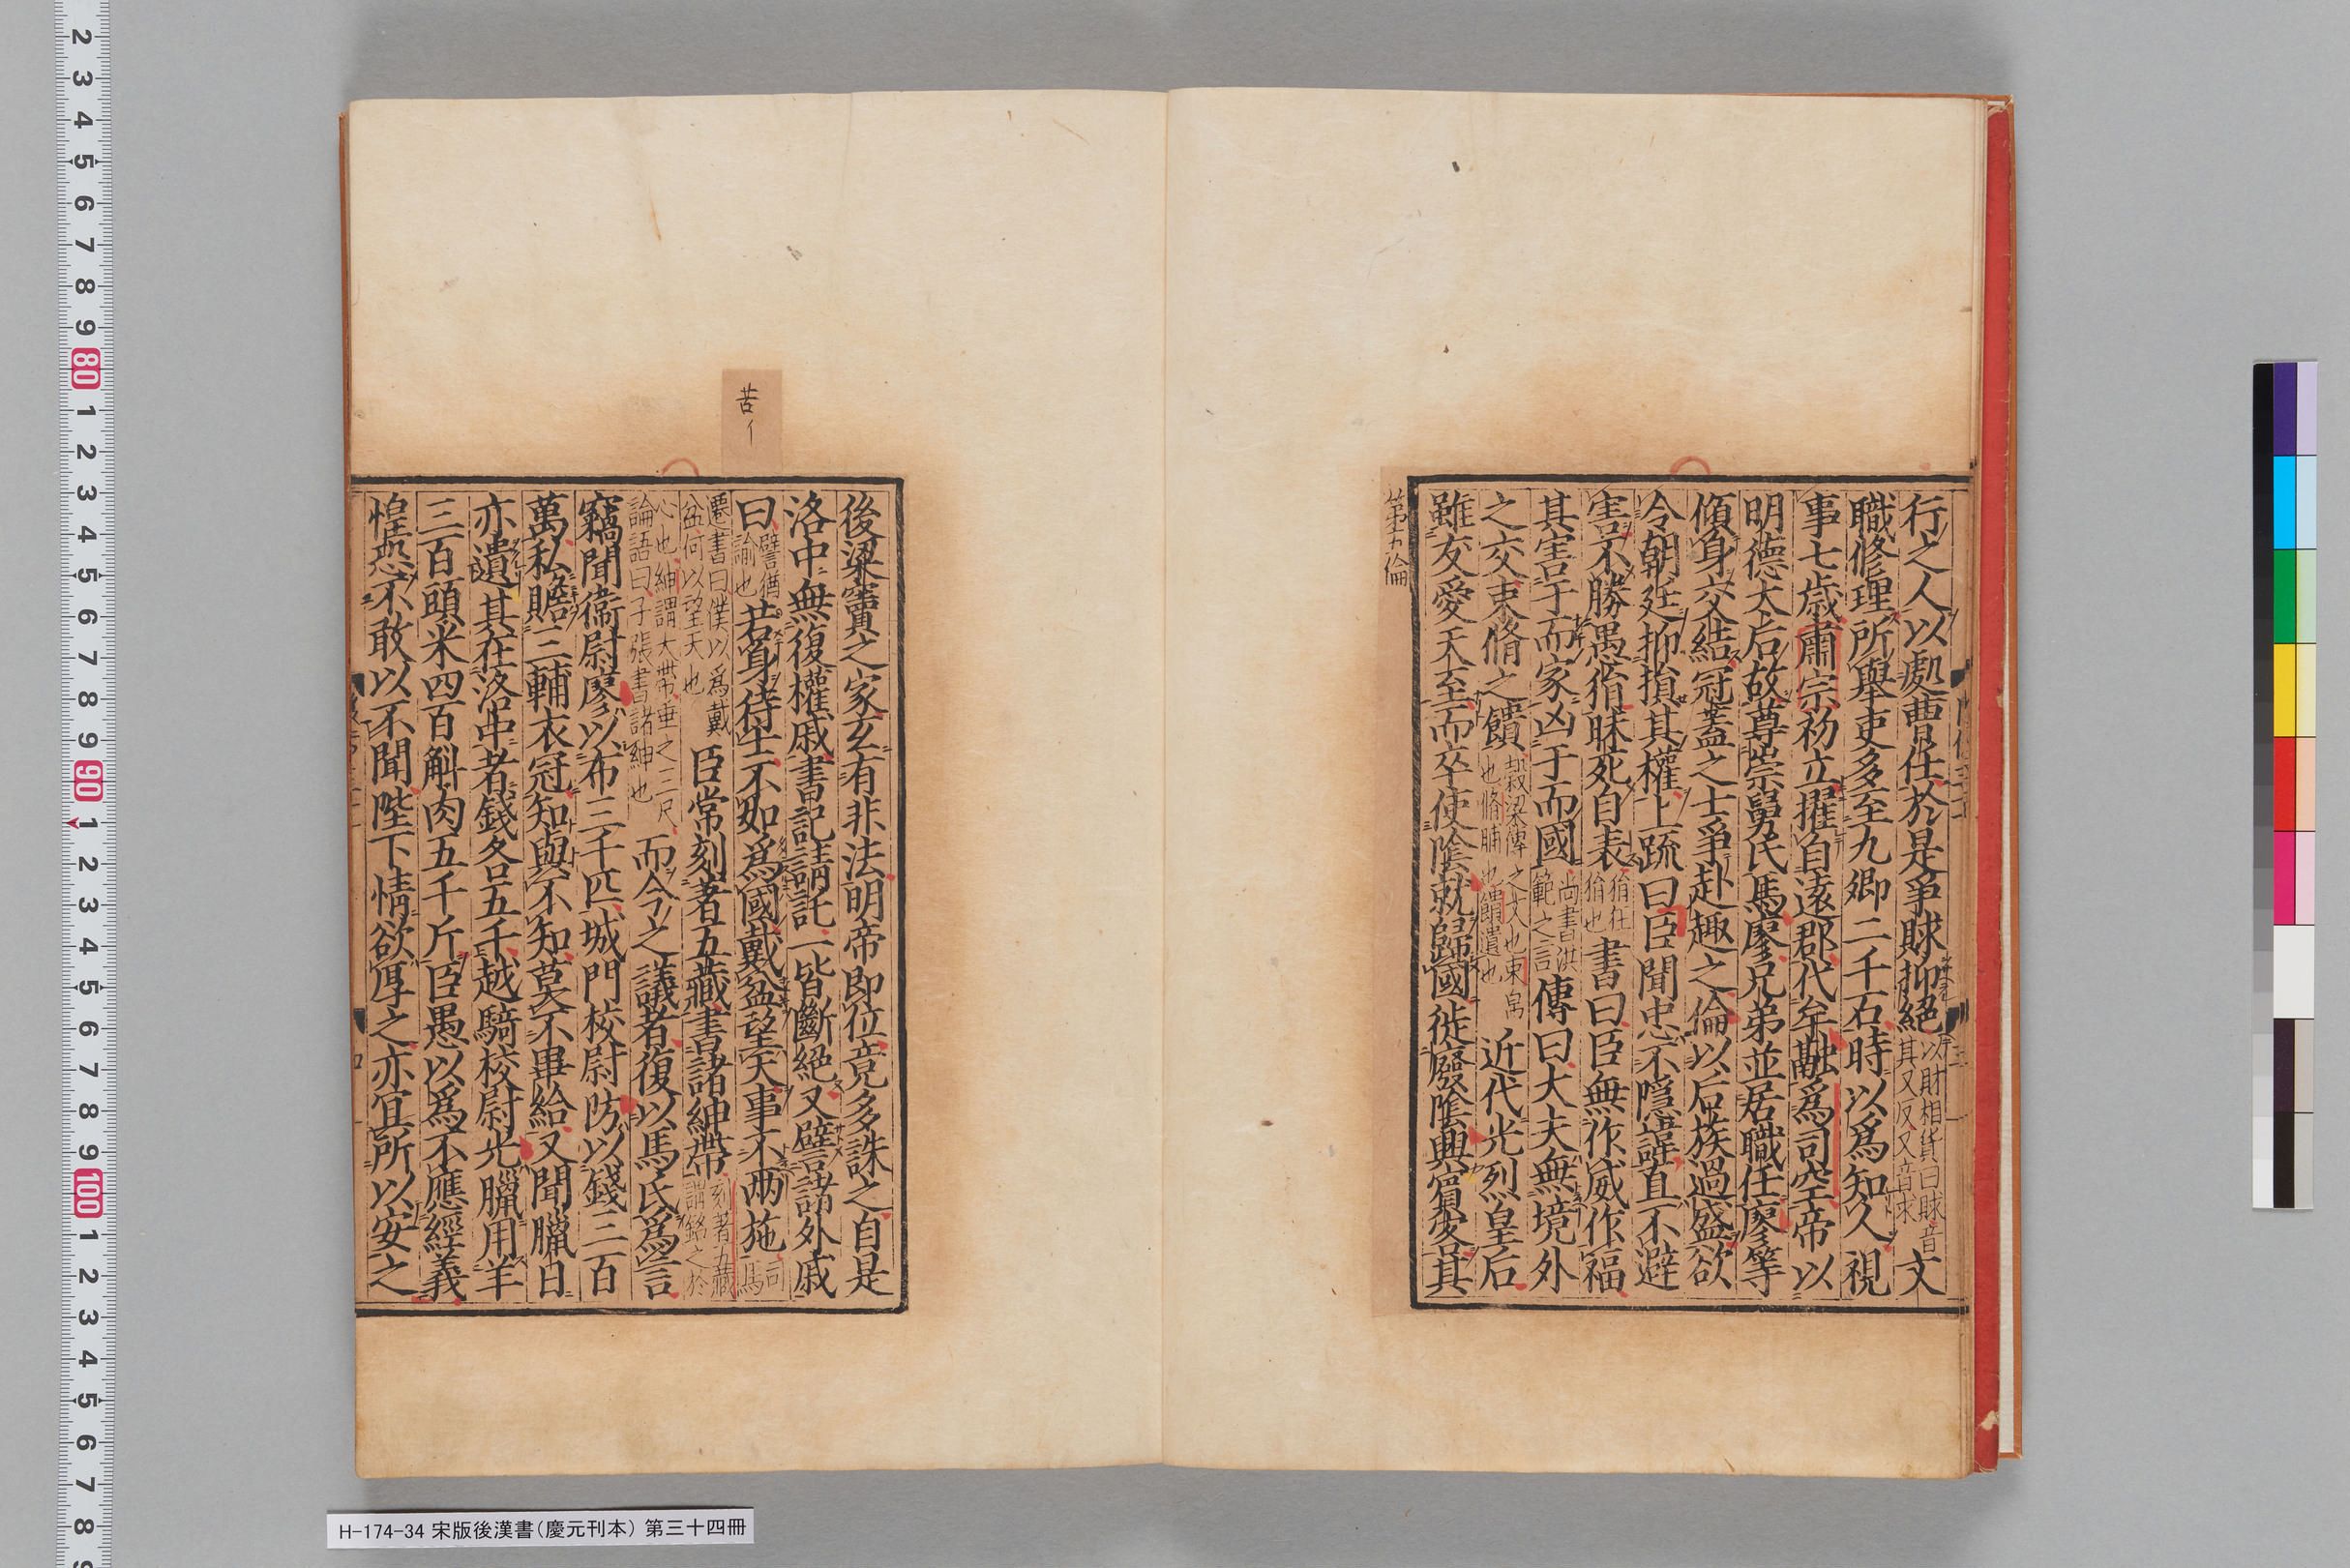 行之人以處曹任於是爭賕抑絕以財相貨曰賕音其又反又音求文
職修理所舉吏多至九卿二千石時以爲知人視
事七歲肅宗初立擢自遠郡代牟融爲司空帝以
明德太后故尊崇舅氏馬廖兄弟並居職任廖等
傾身交結冠蓋之士爭赴趣之倫以后族過盛欲
令朝廷抑損其權上疏曰臣聞忠不隱諱直不避
害不勝愚狷昧死自表狷狂狷也書曰臣無作威作福
其害于而家凶于而國尚書洪範之言傳曰大夫無境外
之交束脩之饋穀梁傳之文也束帛也脩脯也饋遺也近代光烈皇后
雖友愛天至而卒使陰就歸國徙廢陰興賓客其
第五倫
後梁竇之家玄有非法明帝即位竟多誅之自是
洛中無復權戚書記請託一皆斷絕又譬諸外戚
曰譬猶諭也苦身待士不如爲國戴盆望天事不兩施司馬
遷書曰僕以爲戴盆何以望天也臣常刻著五藏書諸紳帶刻著五藏謂銘之於
心也紳謂大帶垂之三尺論語曰子張書諸紳也而今之議者復以馬氏爲言
竊聞衞尉廖以布三千匹城門校尉防以錢三百
萬私贍三輔衣冠知與不知莫不畢給又聞臘日
亦遺其在洛中者錢各五千越騎校尉光臘用羊
三百頭米四百斛肉五千斤臣愚以爲不應經義
惶恐不敢以不聞陛下情欲厚之亦宜所以安之
苦イ
H-174-34 宋版後漢書（慶元刊本） 第三十四冊
2 3 4 5 6 7 8 9 80 1 2 3 4 5 6 7 8 9 90 1 2 3 4 5 6 7 8 9 100 1 2 3 4 5 6 7 8 9